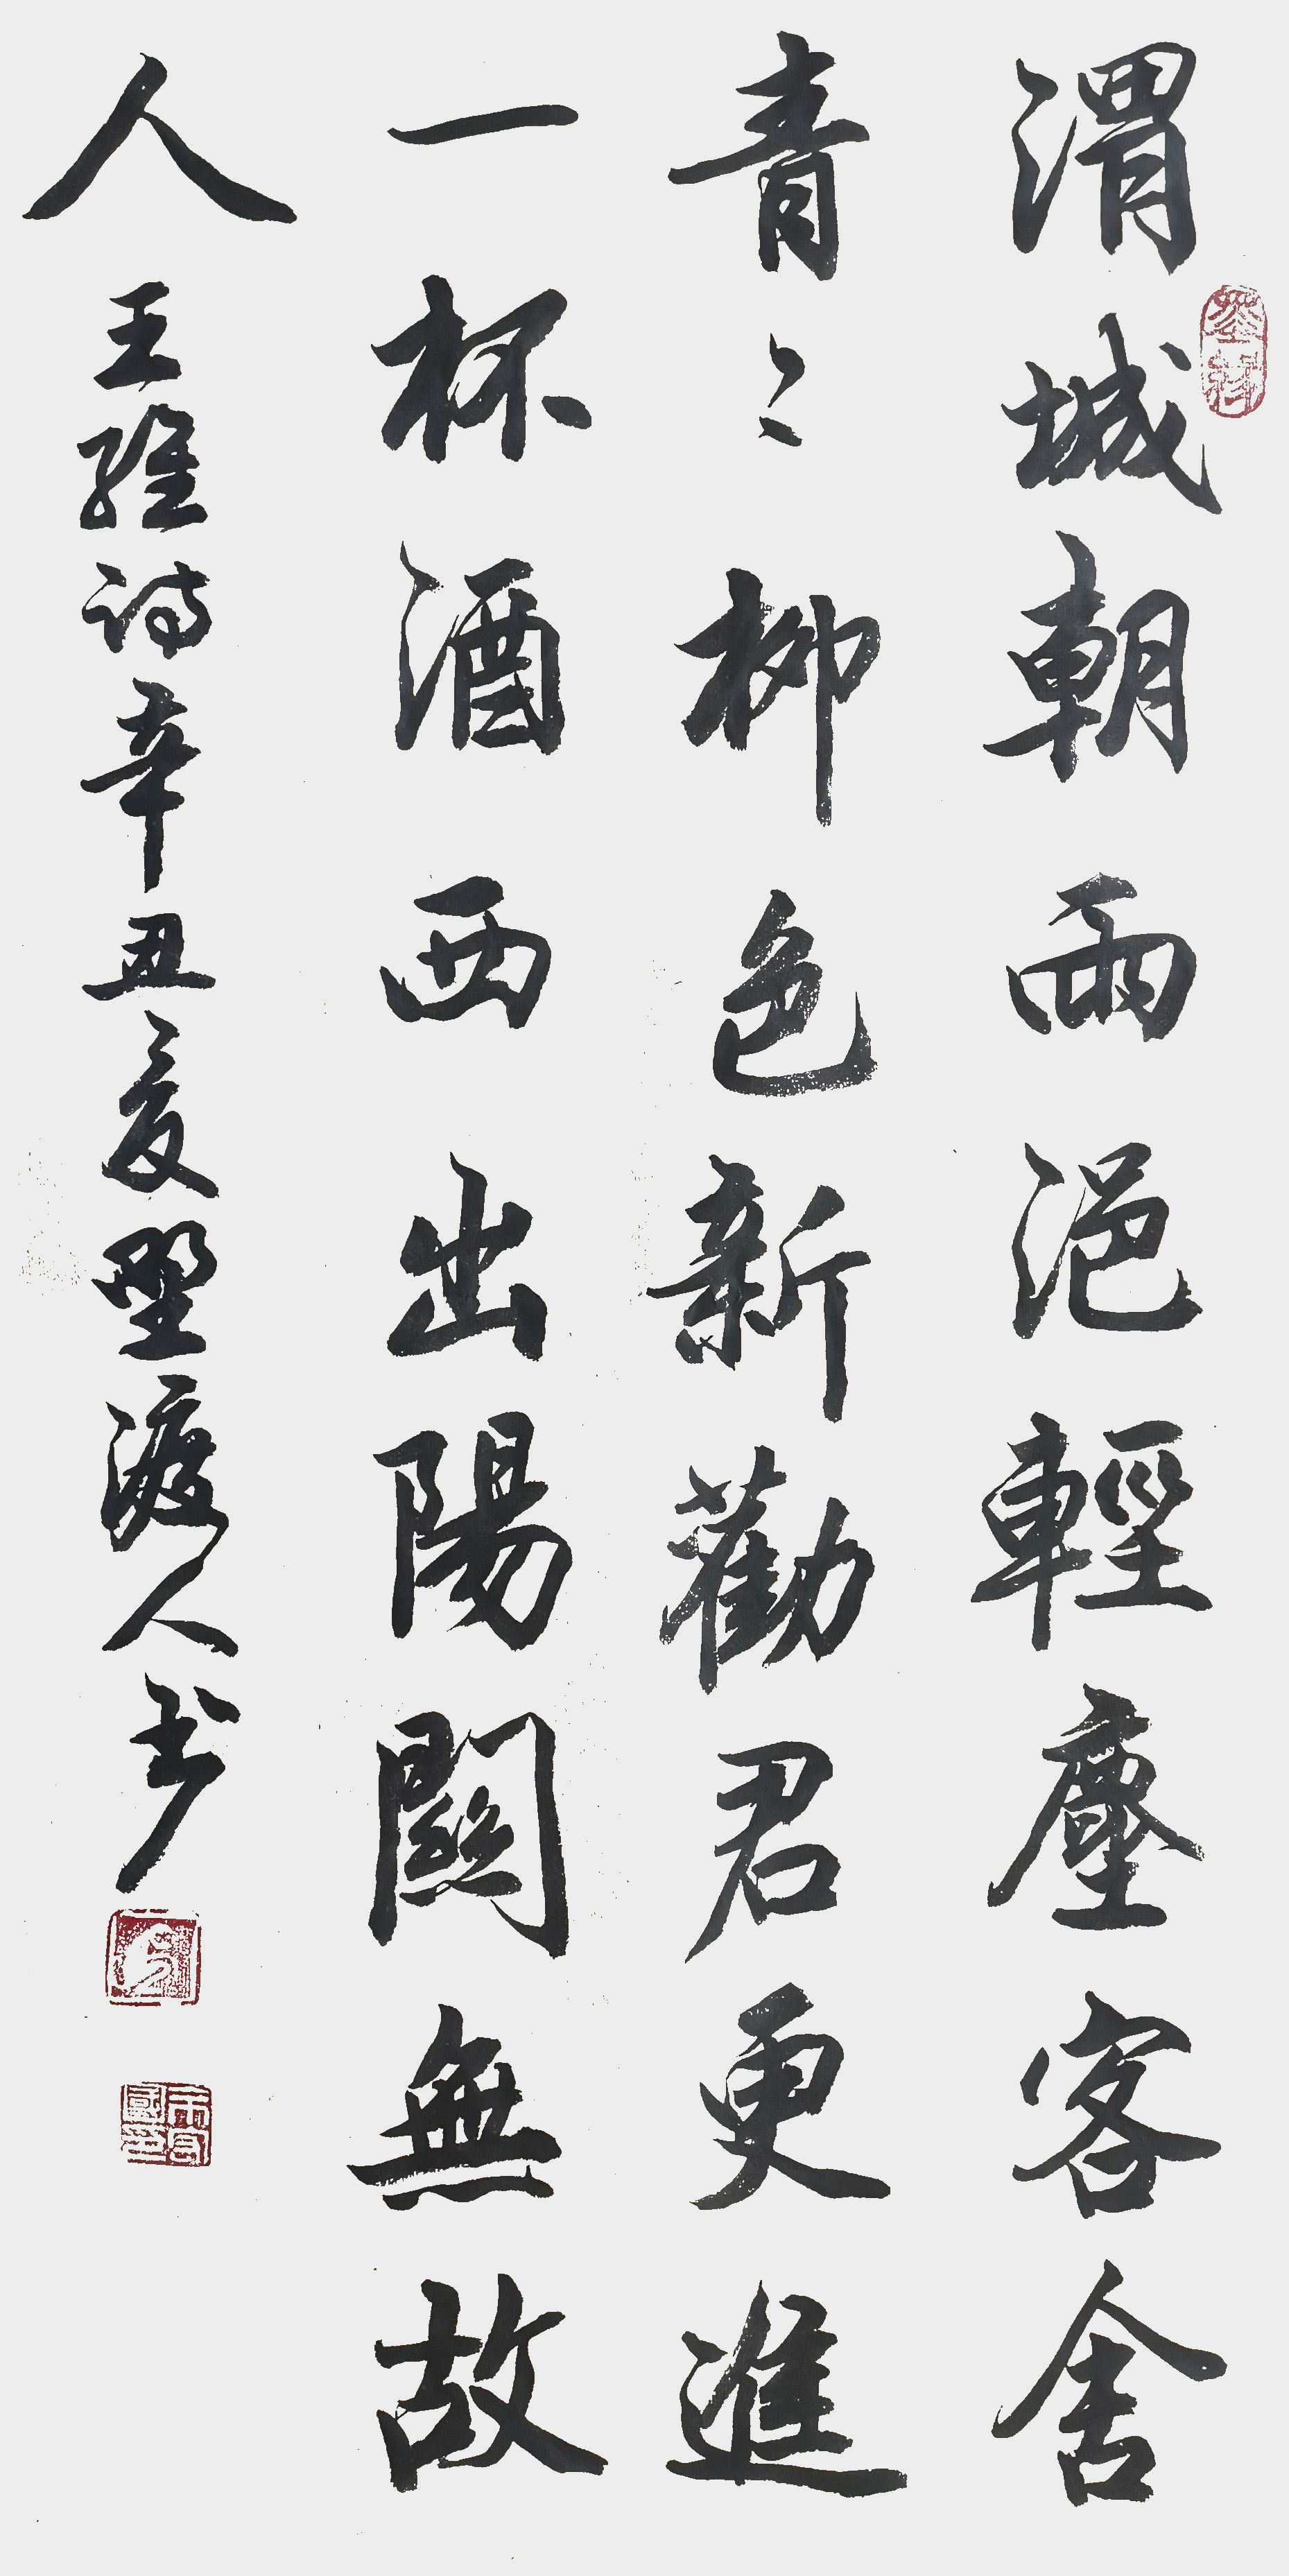 渭城朝雨浥輕塵客舍
青〻柳色新勸君更進
一杯酒西出陽關無故
人
王維詩辛丑夏野渡人书